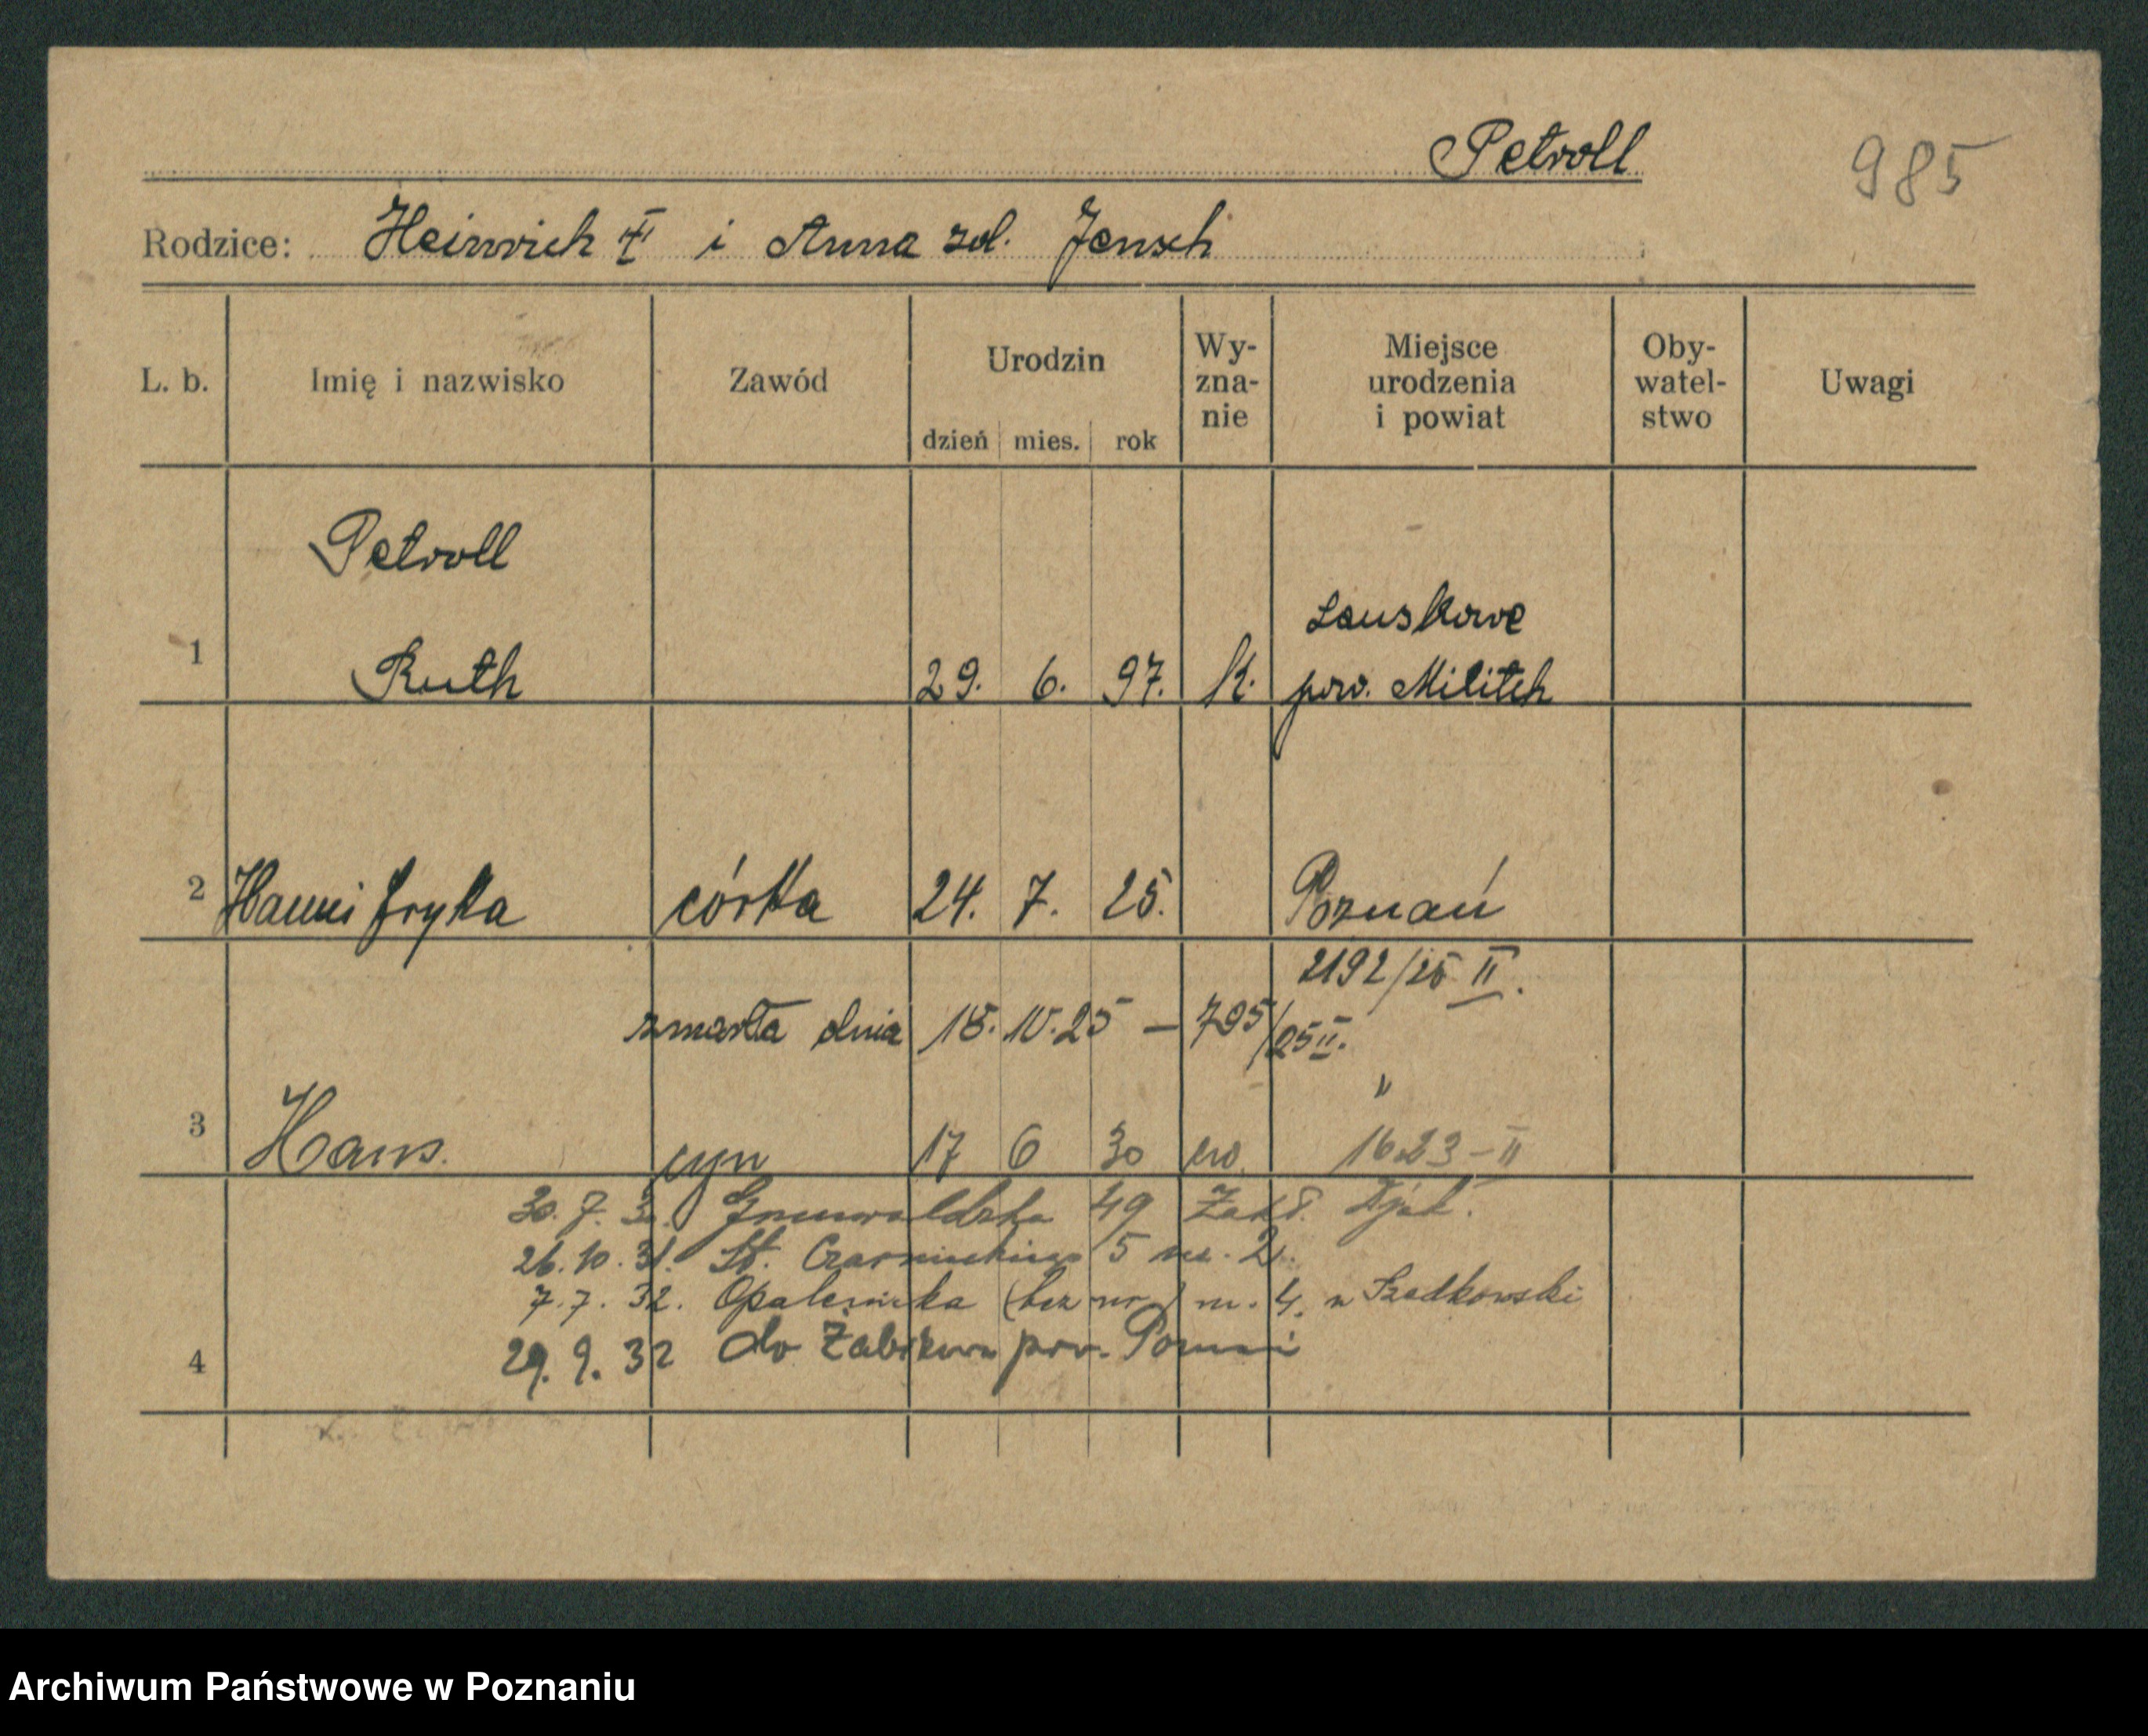 Petroll
985
Rodzice: Heinrich II i Anna zd. Jensch
L. b. Imię i nazwisko Zawód Urodzin dzień mies. rok Wy-zna-nie Miejsce urodzenia i powiat Oby-watel-stwo Uwagi
Petroll
Lauskowe
1 Ruth 29. 6. 97. k. pow. Militsch
2 Hanni Eryka córka 24. 7. 25. Poznań
2192/25 II.
zmarła dnia 18. 10. 25 — 795/25 II.
"
3 Hans. syn 17 6 30 ew. 1623 - II
30. 7. 30. Grunwaldzka 49 Zakł. Djak.
26. 10. 31. St. Czarnieckiego 5 m. 2.
7. 7. 32. Opalenicka (bez nr) m. 4. u Szadkowski
4 29. 9. 32 do Żabikowa pow. Poznań
Archiwum Państwowe w Poznaniu